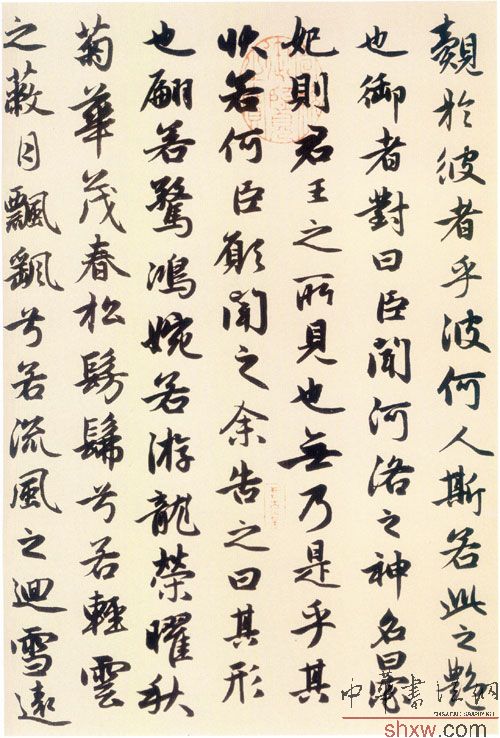 覿於彼者乎波何人斯若此之艷
也御者對曰臣聞河洛之神名曰宓
妃則君王之所見也無乃是乎其
状若何臣願聞之余告之曰其形
也翩若驚鴻婉若游龍榮曜秋
菊華茂春松髣髴兮若輕雲
之蔽月飄飖兮若流風之迴雪遠
中華書法網
shxw.com